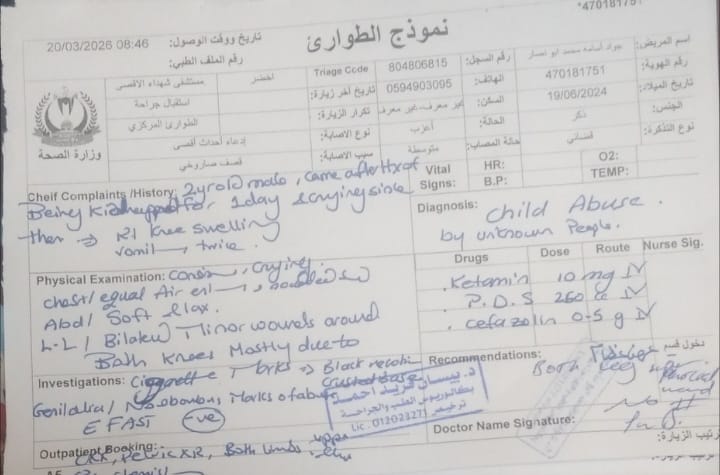 *470181751
نموذج الطوارئ
تاريخ ووقت الوصول: 20/03/2026 08:46
رقم الملف الطبي:
اسم المريض: جواد اسامه محمد ابو نصار
رقم السجل: 804806815
Triage Code اخضر
مستشفى شهداء الاقصى
رقم الهوية: 470181751
الهاتف: 0594903095
تاريخ آخر زيارة:
استقبال جراحة
تاريخ الميلاد: 19/06/2024
السكن: غير معرف-غير معرف
تكرار الزيارة:
الطوارئ المركزي
الجنس: ذكر
الحالة: أعزب
نوع الاصابة: إدعاء أحداث أقصى
نوع التذكرة:
حالة المصاب: متوسطة
سبب الاصابة: قصف صاروخي
وزارة الصحة
Vital Signs: HR: O2:
B.P: TEMP:
Cheif Complaints /History: 2 yr old male, came after Hx of
Being Kidnapped for 1 day & crying since
then → Rt Knee swelling
vomit twice.
Diagnosis: Child Abuse.
by unknown People.
Physical Examination: crying.
chest/ equal Air
Abd/ Soft & lax.
L.L/ Bilateral Minor wounds around
Both Knees Mostly due to
Cigarette Marks → Black
Drugs Dose Route Nurse Sig.
. Ketamin 10 mg IV
. P.D.S 250 cc IV
. Cefazolin 0.5 g IV
Investigations:
Genitalia/ No obvious Marks of abuse
E FAST -ve
Recommendations:
دخول قسم
Both Leg
د. بيسان فريد احمد
بكالوريوس الطب والجراحة
ترخيص Lic. 01202327
Doctor Name Signature:
ترتيب الزيارة:
Outpatient Booking: CXR, Pelvic XR, Both Limbs upper